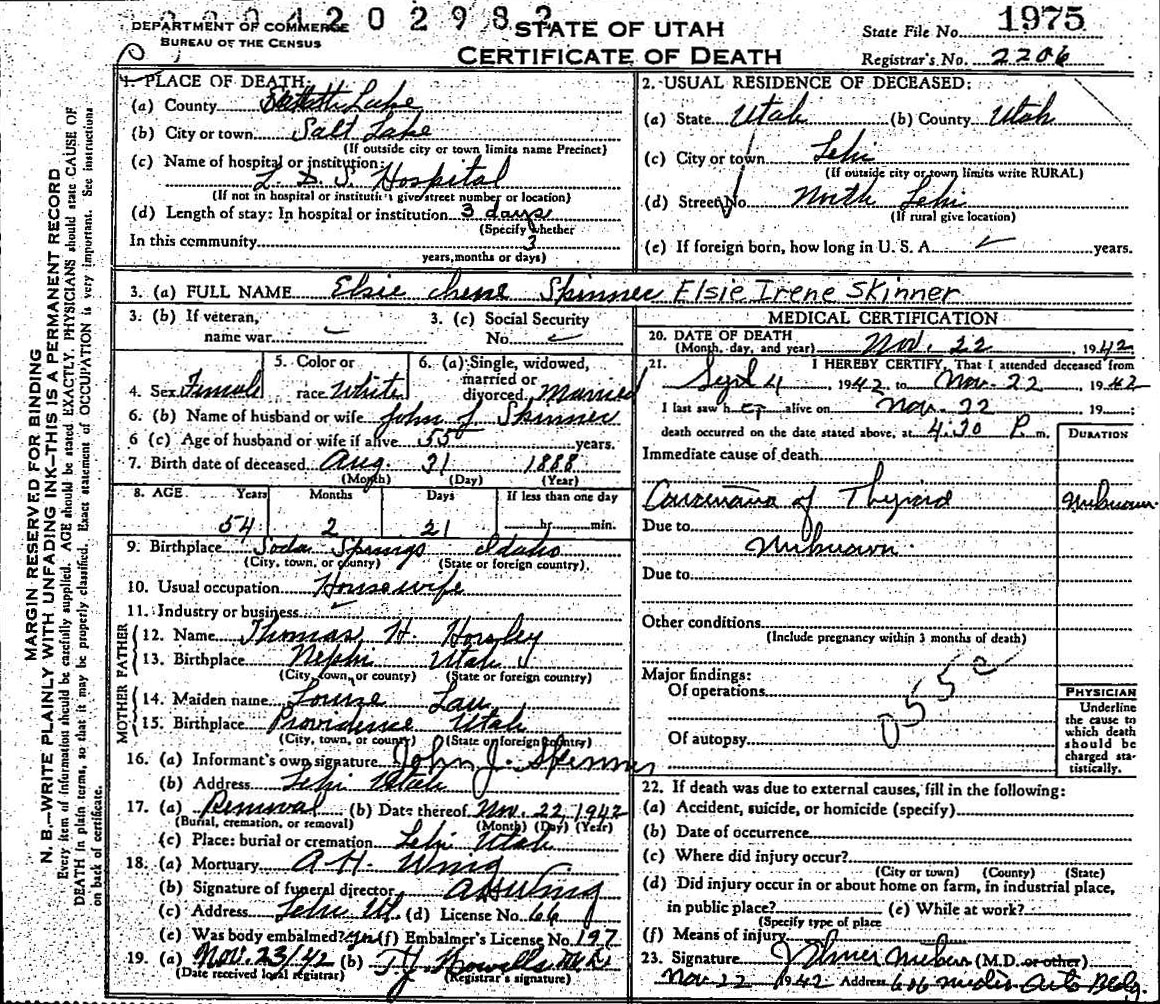 004202982
DEPARTMENT OF COMMERCE
BUREAU OF THE CENSUS
STATE OF UTAH
CERTIFICATE OF DEATH
State File No. 1975
Registrar's No. 2206
MARGIN RESERVED FOR BINDING
N. B.—WRITE PLAINLY WITH UNFADING INK—THIS IS A PERMANENT RECORD
Every item of information should be carefully supplied. AGE should be stated EXACTLY. PHYSICIANS should state CAUSE OF
DEATH in plain terms, so that it may be properly classified. Exact statement of OCCUPATION is very important. See instructions
on back of certificate.
1. PLACE OF DEATH:
(a) County Lake
(b) City or town Salt Lake
(If outside city or town limits name Precinct)
(c) Name of hospital or institution:
L. D. S. Hospital
(If not in hospital or institution give street number or location)
(d) Length of stay: In hospital or institution 3 days
(Specify whether
In this community 3
years, months or days)
2. USUAL RESIDENCE OF DECEASED:
(a) State Utah (b) County Utah
(c) City or town Lehi
(If outside city or town limits write RURAL)
(d) Street No. North Lehi
(If rural give location)
(e) If foreign born, how long in U. S. A. years.
3. (a) FULL NAME Elsie Irene Skinner Elsie Irene Skinner
3. (b) If veteran,
name war
3. (c) Social Security
No.
4. Sex Female
5. Color or
race White
6. (a) Single, widowed,
married or
divorced Married
6. (b) Name of husband or wife John J. Skinner
6 (c) Age of husband or wife if alive 55 years.
7. Birth date of deceased Aug. 31 1888
(Month) (Day) (Year)
8. AGE Years Months Days If less than one day
54 2 21 hr. min.
9. Birthplace Soda Springs Idaho
(City, town, or county) (State or foreign country)
10. Usual occupation Housewife
11. Industry or business
FATHER
12. Name Thomas H. Horsley
13. Birthplace Nephi Utah
(City, town, or county) (State or foreign country)
MOTHER
14. Maiden name Louise Law
15. Birthplace Providence Utah
(City, town, or county) (State or foreign country)
16. (a) Informant's own signature John J. Skinner
(b) Address Lehi Utah
17. (a) Removal (b) Date thereof Nov. 22 1942
(Burial, cremation, or removal) (Month) (Day) (Year)
(c) Place: burial or cremation Lehi Utah
18. (a) Mortuary A. H. Wing
(b) Signature of funeral director A H Wing
(c) Address Lehi Ut. (d) License No. 66
(e) Was body embalmed? yes (f) Embalmer's License No. 197
19. (a) Nov. 23/42 (b) T. J. Howells M.D.
(Date received local registrar) (Registrar's signature)
MEDICAL CERTIFICATION
20. DATE OF DEATH
(Month, day, and year) Nov. 22, 1942
21. I HEREBY CERTIFY, That I attended deceased from
Sept 4 1942, to Nov-22 1942
I last saw her alive on Nov-22, 19
death occurred on the date stated above, at 4:30 P. m.
DURATION
Immediate cause of death
Carcinoma of Thyroid unknown
Due to
Unknown
Due to
Other conditions
(Include pregnancy within 3 months of death)
Major findings:
Of operations
055c
Of autopsy
PHYSICIAN
Underline
the cause to
which death
should be
charged sta-
tistically.
22. If death was due to external causes, fill in the following:
(a) Accident, suicide, or homicide (specify)
(b) Date of occurrence
(c) Where did injury occur?
(City or town) (County) (State)
(d) Did injury occur in or about home on farm, in industrial place,
in public place? (e) While at work?
(Specify type of place
(f) Means of injury
23. Signature (M.D. or other)
Nov 22 1942 Address 606 Medic Arts Bldg.